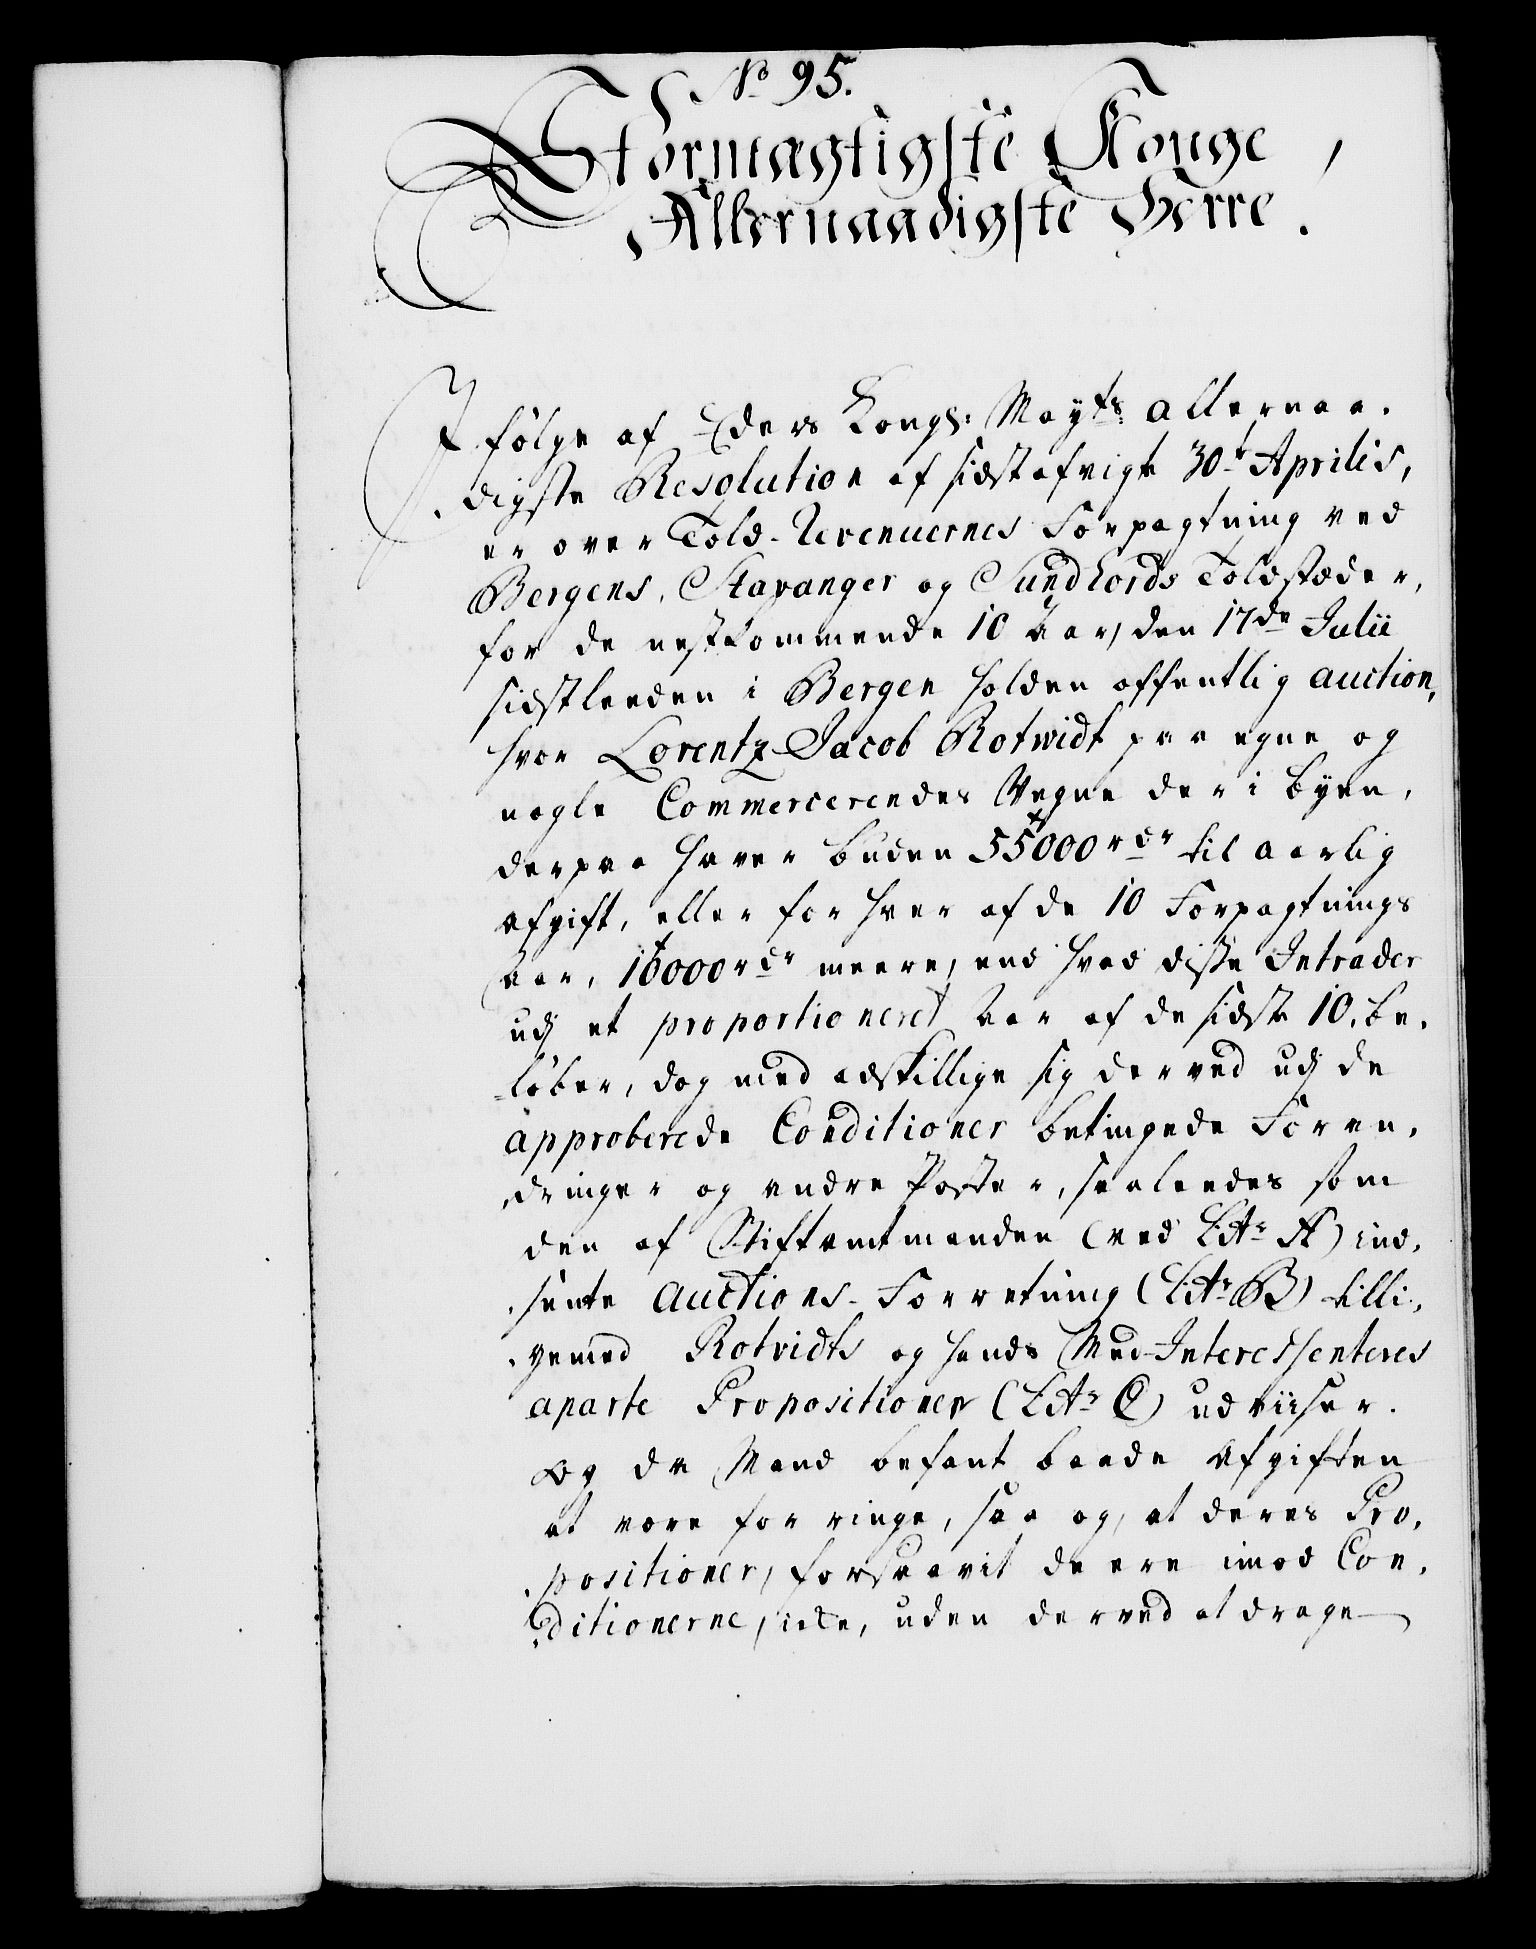 No 95.
Stormægtigste Konge,
Allernaadigste Herre.
I følge af Eders Kongl: Mayts allernaa-
digste Resolution af sidstafvigte 30te Aprilis,
er over Told-Revenuernes Forpagtning ved
Bergens, Stavanger og Sundhords Toldstæder,
for de nestkommende 10 Aar, den 17de Julii
sidstleeden i Bergen holden offentlig auction,
hvor Lorentz Jacob Rotwidt paa egne og
nogle Commercerendes Vegne der i byen,
derpaa haver buden 55000 rdr til aarlig
afgift, eller for hver af de 10 Forpagtnings
Aar, 16000 rdr meere, end hvad disse Intrader
udj et proportioneret Aar af de sidste 10, be-
-løber, dog med adskillige sig derved udj de
approberede Conditioner betingede Foran-
dringer og andre Poster, saaleedes som
den af Stiftamtmanden (ved Litr A) ind-
sente Auctions-Forretning (Litr B) tilli-
gemed Rotvidts og hands Med-Interessenteres
aparte Propositioner (Litr C) udviiser.
Og da Mand befant baade Afgiften
at være for ringe, saa og, at deres Pro-
positioner, forsaavit de ere imod Con-
ditionerne, icke, uden derved at drage